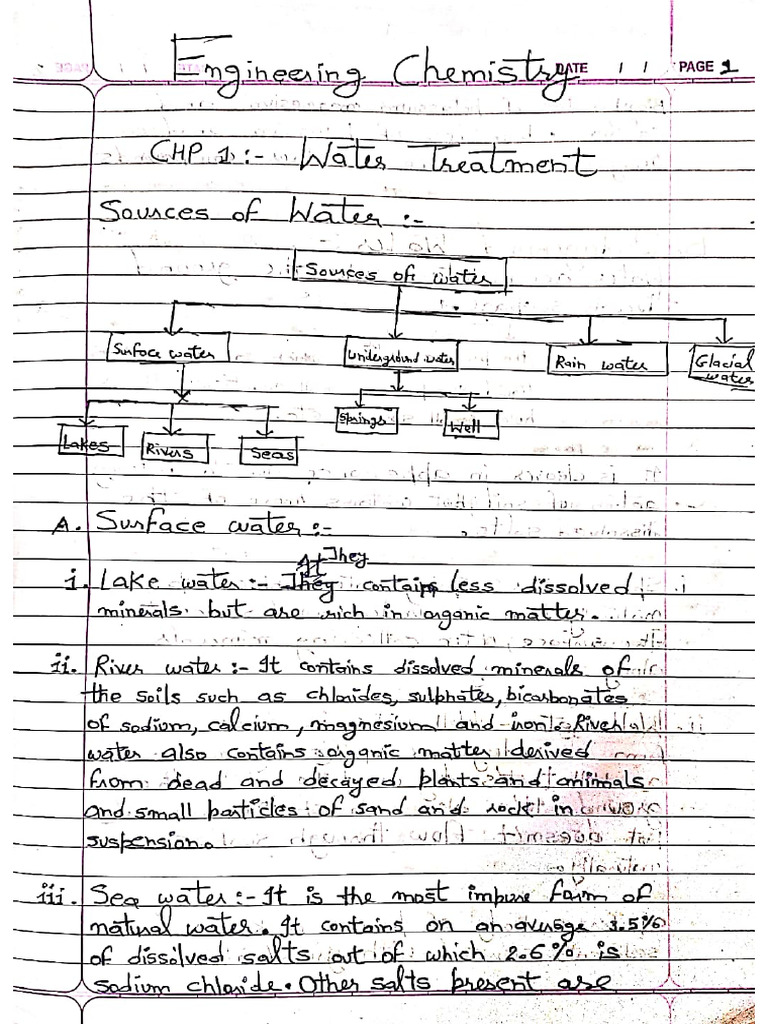 Engineering Chemistry
DATE / / PAGE 1
CHP 1:- Water Treatment
Sources of Water:-
Sources of water
Surface water Underground water Rain water Glacial water
Springs Well
Lakes Rivers Seas
A. Surface water:-
It They
i. Lake water:- They contain less dissolved
minerals but are rich in organic matter.
ii. River water:- It contains dissolved minerals of
the soils such as chlorides, sulphates, bicarbonates
of sodium, calcium, magnesium and iron. River
water also contains organic matter derived
from dead and decayed plants and animals
and small particles of sand and rock in
suspension.
iii. Sea water:- It is the most impure form of
natural water. It contains on an average 3.5%
of dissolved salts out of which 2.6% is
sodium chloride. Other salts present are